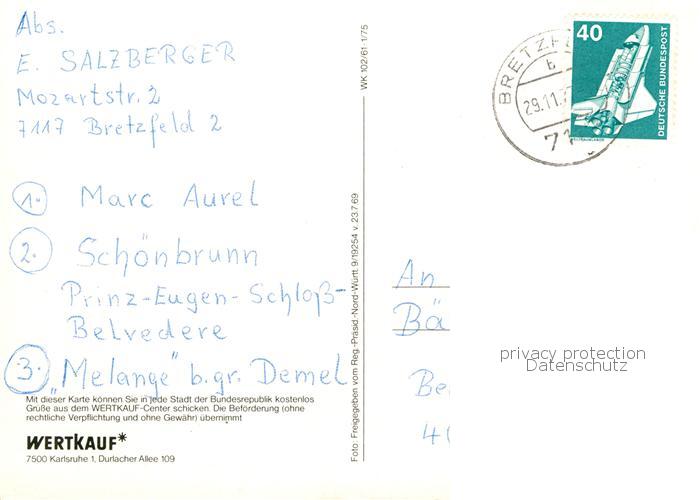 Abs.
E. SALZBERGER
Mozartstr. 2
7117 Bretzfeld 2
1. Marc Aurel
2. Schönbrunn
Prinz-Eugen-Schloß-
Belvedere
3. „Melange" b. gr. Demel
Mit dieser Karte können Sie in jede Stadt der Bundesrepublik kostenlos
Grüße aus dem WERTKAUF-Center schicken. Die Beförderung (ohne
rechtliche Verpflichtung und ohne Gewähr) übernimmt
WERTKAUF*
7500 Karlsruhe 1, Durlacher Allee 109
WK 102/61-1/75
Foto: Freigegeben vom Reg.-Präsid.-Nord-Württ. 9/19254 v. 23.7.69
29.11.
40
DEUTSCHE BUNDESPOST
An
privacy protection
Datenschutz